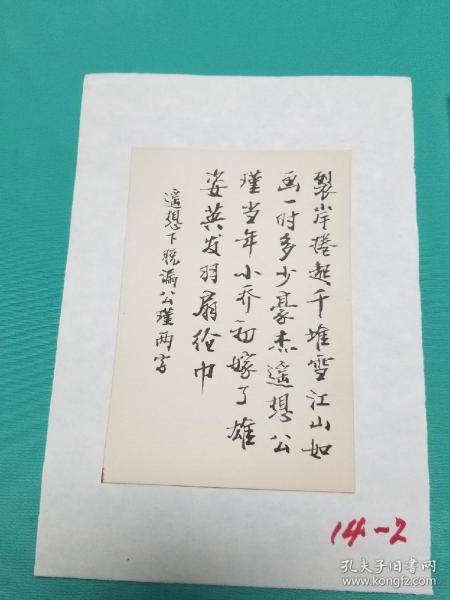 裂岸捲起千堆雪江山如
画一时多少豪杰遥想公
瑾当年小乔初嫁了雄
姿英发羽扇纶巾
遥想下脱漏公瑾两字
14-2
孔夫子旧书网
www.kongfz.com